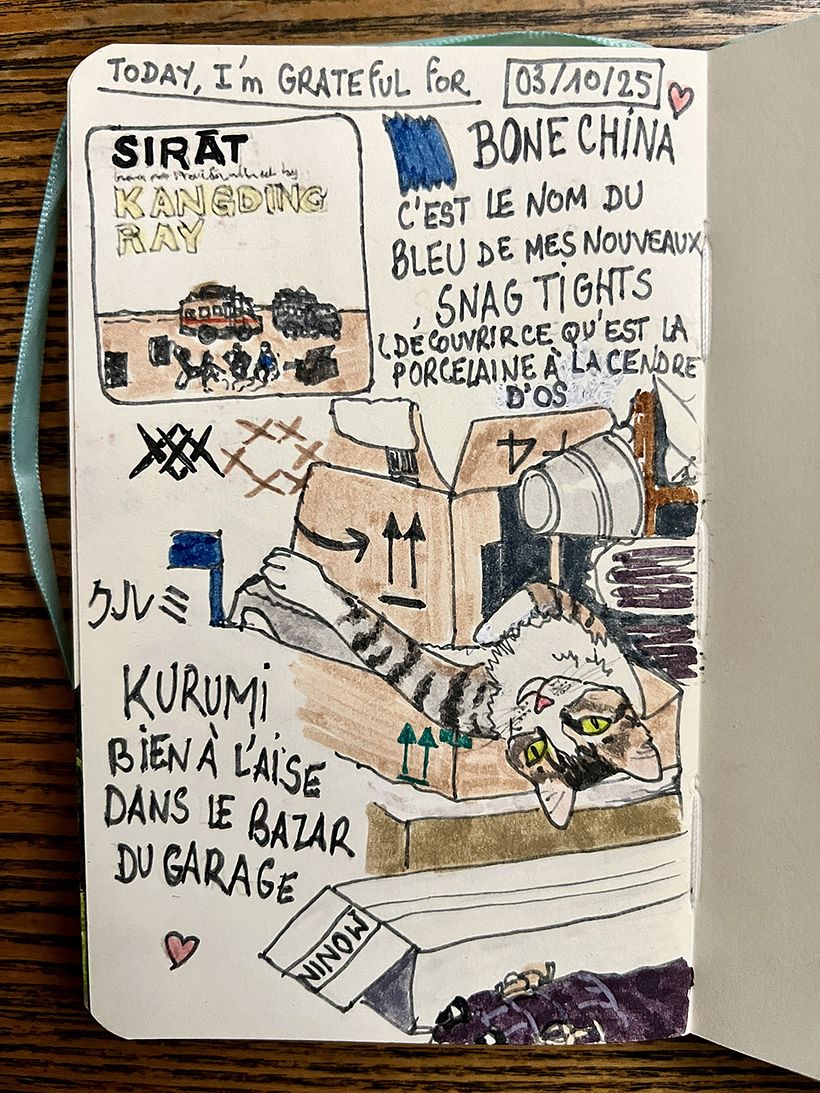 TODAY, I'm GRATEFUL FOR
03/10/25
SIRĀT
KANGDING
RAY
BONE CHINA
C'EST LE NOM DU
BLEU DE MES NOUVEAUX
SNAG TIGHTS
(DÉCOUVRIR CE QU'EST LA
PORCELAINE À LA CENDRE
D'OS
クルミ
KURUMI
BIEN À L'AISE
DANS LE BAZAR
DU GARAGE
NINOW